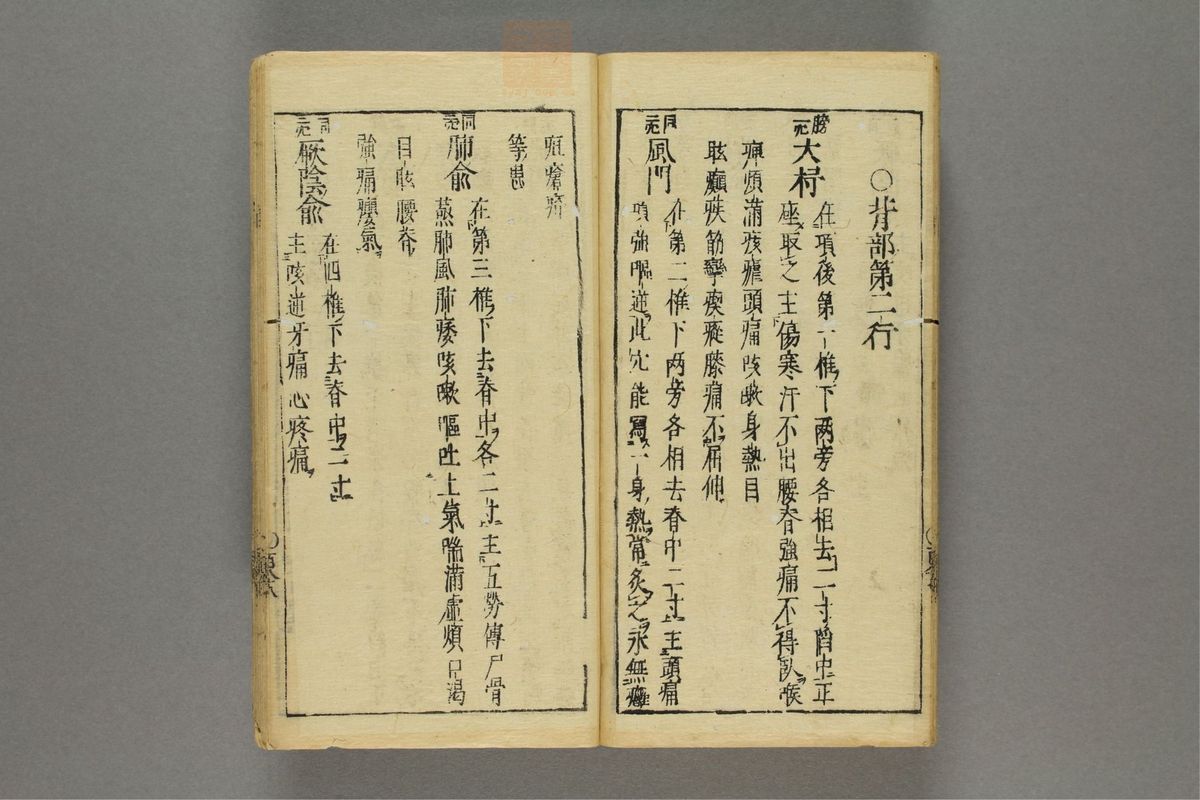 〇背部第二行
膀
大杼
在項後第一椎下両旁各相去二寸陷中正
座取之主傷寒汗不出腰脊強痛不得臥喉
痹煩満痎瘧頭痛咳嗽身熱目
眩癲疾筋攣瘈瘲膝痛不屈伸
同
風門
在第二椎下両旁各相去脊中二寸主頭痛
項強嘔逆此穴能寫一身熱常炙之永無癰
疽瘡疥
等患
同
肺俞
在第三椎下去脊中各二寸主五勞傳尸骨
蒸肺風肺痿咳嗽嘔吐上氣喘満虛煩口渴
目眩腰脊
強痛癭氣
同
厥陰俞
在四椎下去脊中二寸
主咳逆牙痛心疼痛